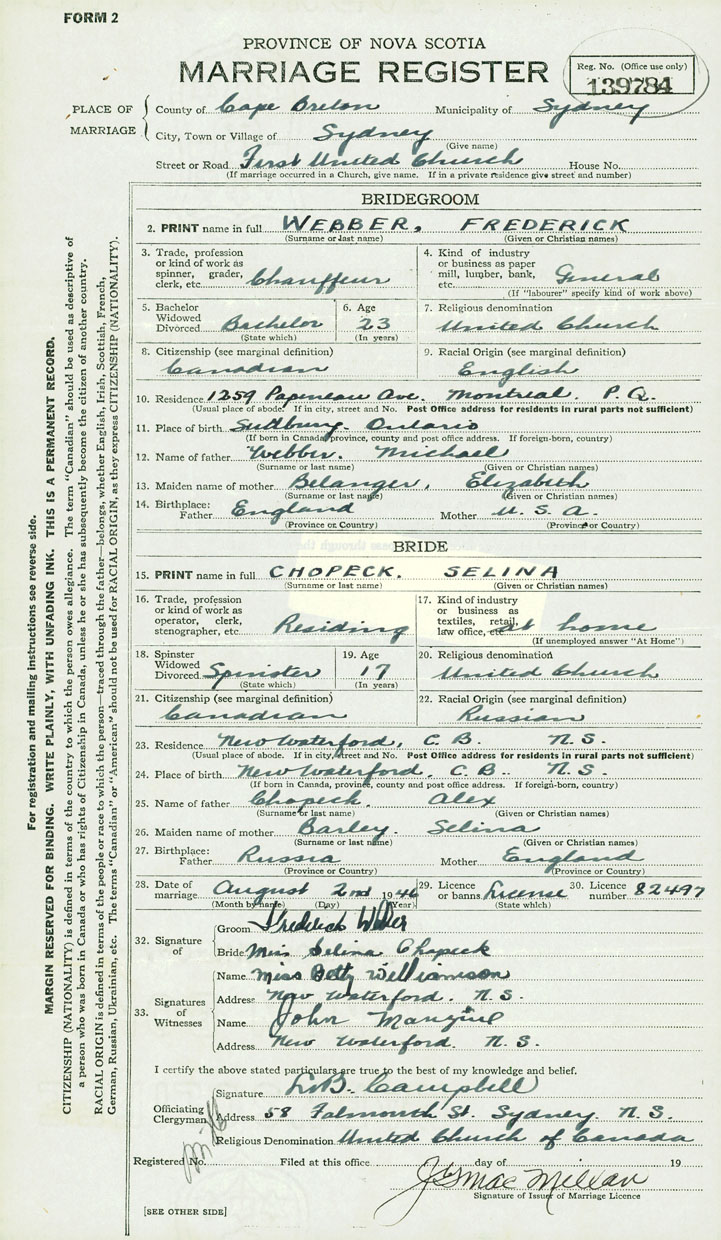 FORM 2
PROVINCE OF NOVA SCOTIA
MARRIAGE REGISTER
Reg. No. (Office use only)
139784
PLACE OF MARRIAGE
County of Cape Breton Municipality of Sydney
City, Town or Village of Sydney
(Give name)
Street or Road First United Church House No.
(If marriage occurred in a Church, give name. If in a private residence give street and number)
BRIDEGROOM
2. PRINT name in full WEBBER, FREDERICK
(Surname or last name) (Given or Christian names)
3. Trade, profession or kind of work as spinner, grader, clerk, etc. Chauffeur
4. Kind of industry or business as paper mill, lumber, bank, etc. General
(If "labourer" specify kind of work above)
5. Bachelor Widowed Divorced Bachelor
(State which)
6. Age 23
(In years)
7. Religious denomination
United Church
8. Citizenship (see marginal definition)
Canadian
9. Racial Origin (see marginal definition)
English
10. Residence 1259 Papineau Ave. Montreal. P.Q.
(Usual place of abode. If in city, street and No. Post Office address for residents in rural parts not sufficient)
11. Place of birth Sudbury. Ontario
(If born in Canada, province, county and post office address. If foreign-born, country)
12. Name of father Webber. Michael
(Surname or last name) (Given or Christian names)
13. Maiden name of mother Belanger, Elizabeth
(Surname or last name) (Given or Christian names)
14. Birthplace: Father England Mother U.S.A.
(Province or Country) (Province or Country)
BRIDE
15. PRINT name in full CHOPECK. SELINA
(Surname or last name) (Given or Christian names)
16. Trade, profession or kind of work as operator, clerk, stenographer, etc. Residing
17. Kind of industry or business as textiles, retail, law office, etc. at home
(If unemployed answer "At Home")
18. Spinster Widowed Divorced Spinster
(State which)
19. Age 17
(In years)
20. Religious denomination
United Church
21. Citizenship (see marginal definition)
Canadian
22. Racial Origin (see marginal definition)
Russian
23. Residence New Waterford, C.B. N.S.
(Usual place of abode. If in city, street and No. Post Office address for residents in rural parts not sufficient)
24. Place of birth New Waterford, C.B. N.S.
(If born in Canada, province, county and post office address. If foreign-born, country)
25. Name of father Chopeck. Alex
(Surname or last name) (Given or Christian names)
26. Maiden name of mother Barley. Selina
(Surname or last name) (Given or Christian names)
27. Birthplace: Father Russia Mother England
(Province or Country) (Province or Country)
28. Date of marriage August 2nd 1946
(Month by name) (Day) (Year)
29. Licence or banns License
(State which)
30. Licence number 82497
32. Signature of
Groom Frederick Webber
Bride Miss Selina Chopeck
33. Signatures of Witnesses
Name Miss Betty Williamson
Address New Waterford. N.S.
Name John
Address New Waterford. N.S.
I certify the above stated particulars are true to the best of my knowledge and belief.
Officiating Clergyman
Signature Campbell
Address 58 Falmouth St. Sydney. N.S.
Religious Denomination United Church of Canada
Registered No. Filed at this office day of 19
MacMillan
Signature of Issuer of Marriage Licence
[SEE OTHER SIDE]
For registration and mailing instructions see reverse side.
MARGIN RESERVED FOR BINDING. WRITE PLAINLY, WITH UNFADING INK. THIS IS A PERMANENT RECORD.
CITIZENSHIP (NATIONALITY) is defined in terms of the country to which the person owes allegiance. The term "Canadian" should be used as descriptive of
a person who was born in Canada or who has rights of Citizenship in Canada, unless he or she has subsequently become the citizen of another country.
RACIAL ORIGIN is defined in terms of the people or race to which the person—traced through the father—belongs, whether English, Irish, Scottish, French,
German, Russian, Ukrainian, etc. The terms "Canadian" or "American" should not be used for RACIAL ORIGIN, as they express CITIZENSHIP (NATIONALITY).